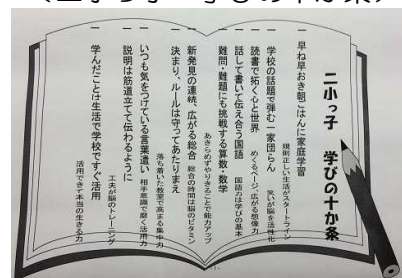 二小っ子　学びの十か条
一　早ね早おき朝ごはんに家庭学習
規則正しい生活がスタートライン
一　学校の話題で弾む一家団らん
笑いが脳を活性化
一　読書で拓く心と世界
めくるページ、広がる想像力
一　話して書いて伝え合う国語
国語力は学びの基本
一　難問・難題にも挑戦する算数・数学
あきらめずやりきることで能力アップ
一　新発見の連続、広がる総合
総合の時間は脳のビタミン
一　決まり、ルールは守ってあたりまえ
落ち着いた教室で高まる集中力
一　いつも気をつけている言葉遣い
相手意識で磨く活用力
一　説明は筋道立てて伝わるように
工夫が脳のトレーニング
一　学んだことは生活で学校ですぐ活用
活用できて本当の生きる力